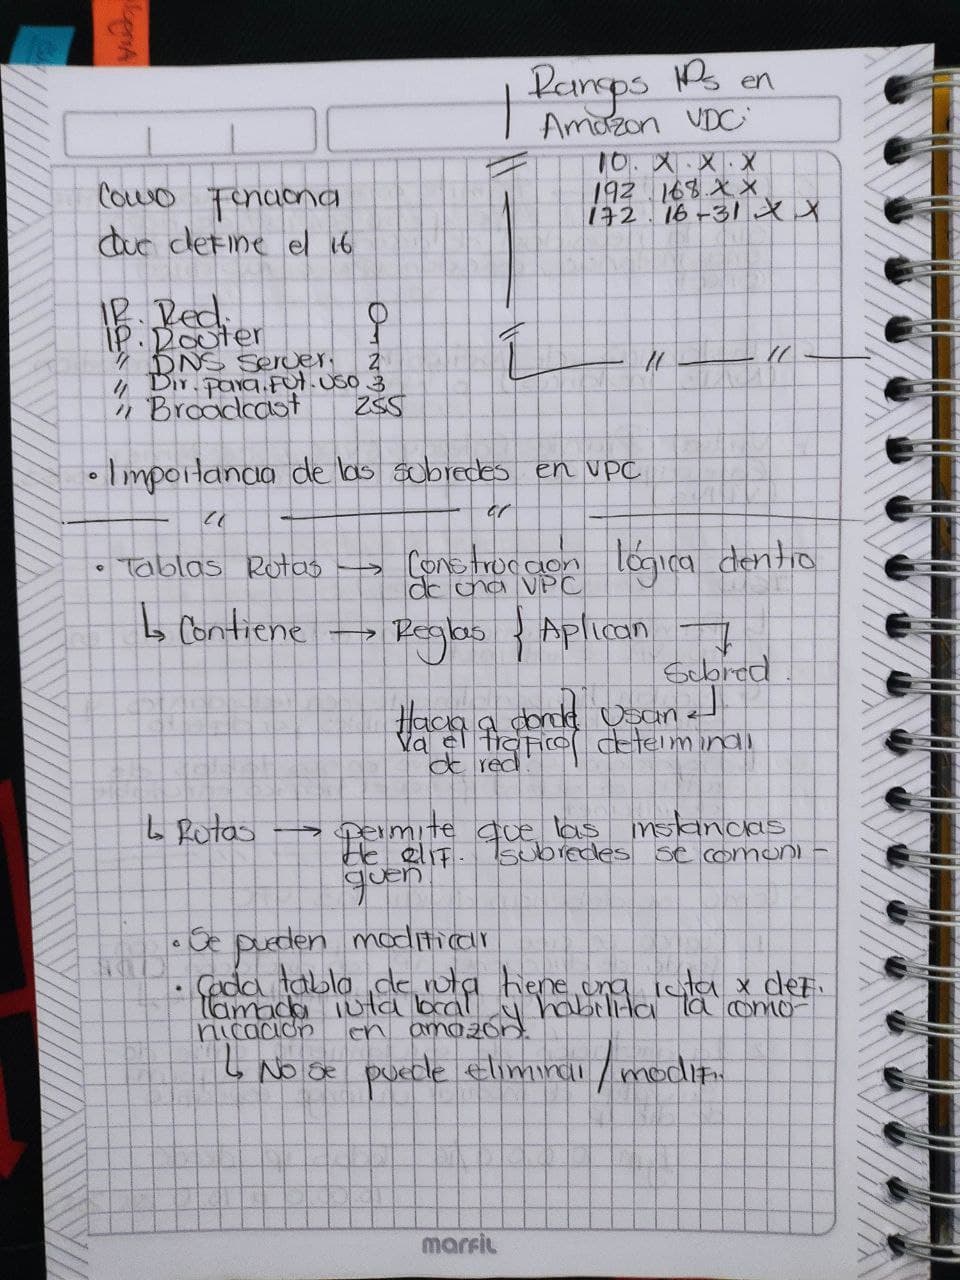 Rangos IPs en
Amazon VDC:
10. x . x . x
192 . 168 . x x
172 . 16-31 . x x
Como funciona
Que define el 16
IP. Red. 0
IP. Rooter 1
" DNS server. 2
" Dir. para. Fut. uso 3
" Broadcast 255
• Importancia de las subredes en VPC
• Tablas Rutas → Construccion lógica dentro
de una VPC
↳ Contiene → Reglas } Aplican
Subred.
Hacia a donde } Usan
va el trafico determinar
de red.
↳ Rutas → permite que las instancias
de dif. subredes se comuni-
quen
• Se pueden modificar
• Cada tabla de ruta tiene una ruta x def.
llamada ruta local y habilita la como-
nicación en amazon.
↳ No se puede eliminar / modif.
marfil